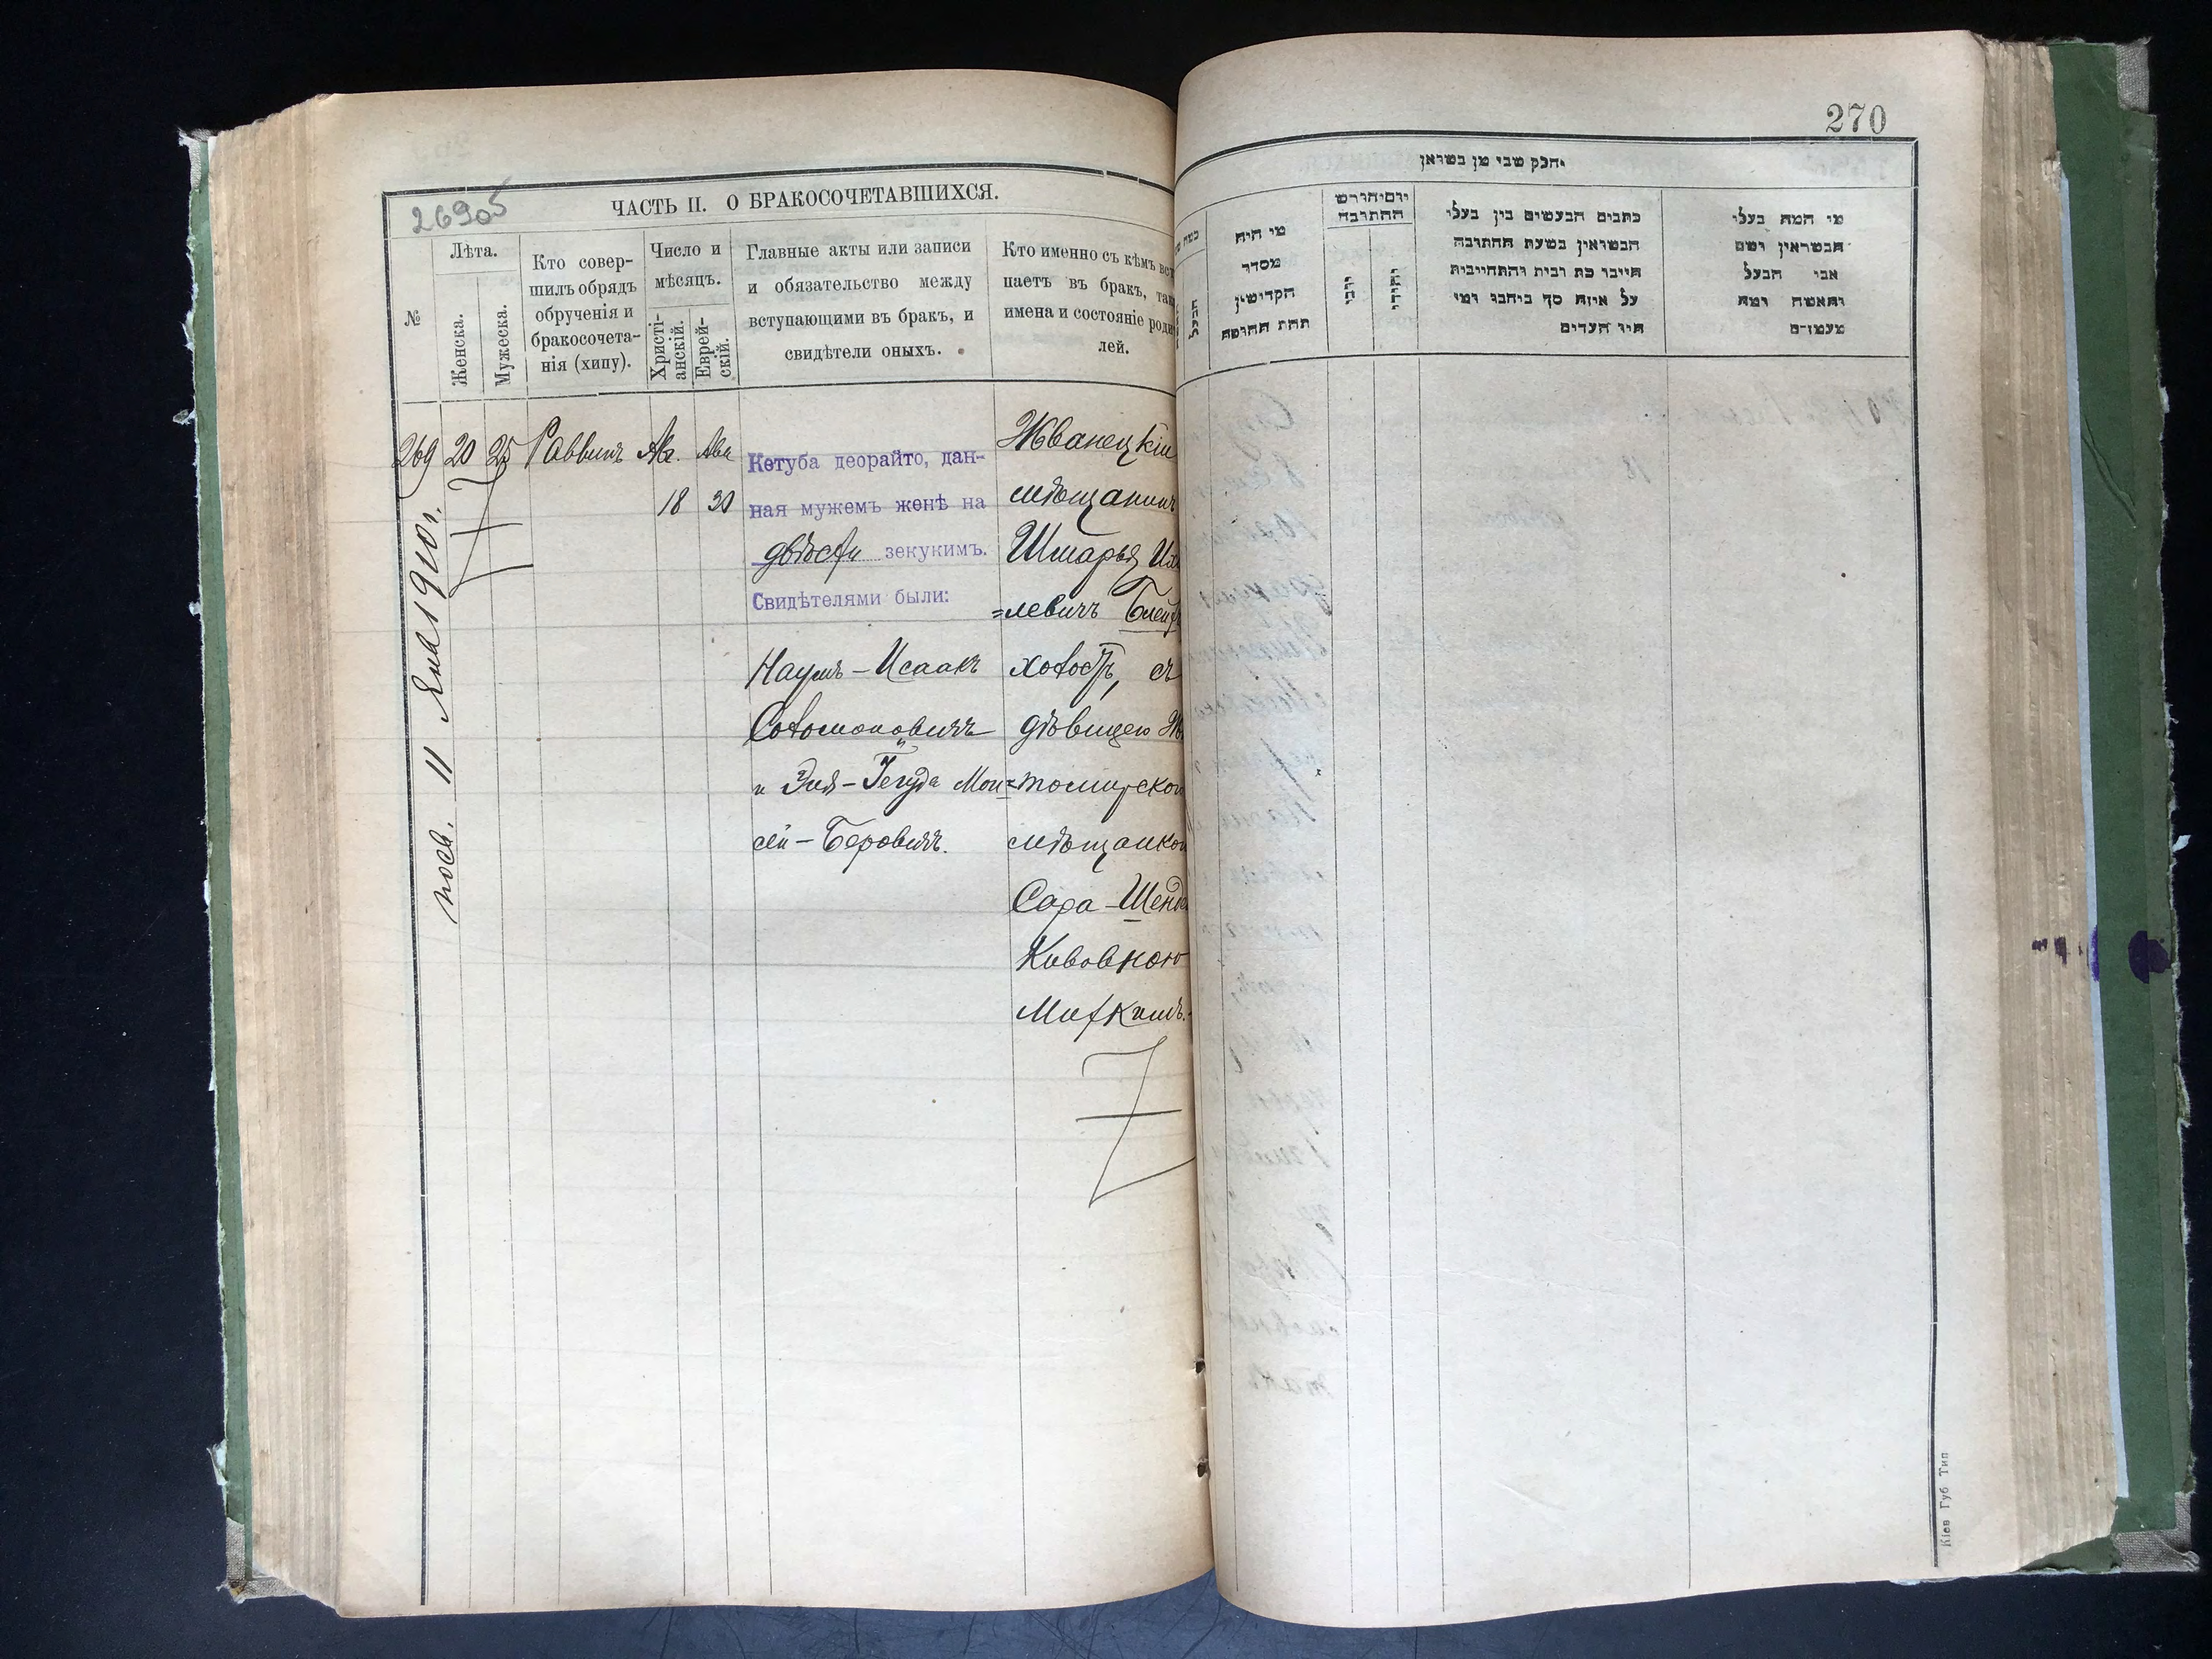 26905
ЧАСТЬ II. О БРАКОСОЧЕТАВШИХСЯ.
№
Лѣта.
Женска.
Мужеска.
Кто совер-
шилъ обрядъ
обрученія и
бракосочета-
нія (хипу).
Число и
мѣсяцъ.
Христі-
анскій.
Еврей-
скій.
Главные акты или записи
и обязательство между
вступающими въ бракъ, и
свидѣтели оныхъ.
Кто именно съ кѣмъ вст
паетъ въ бракъ, так
имена и состояніе роди
лей.
269 20 25 Раввинъ Ав. Ава
18 30
Кетуба деорайто, дан-
ная мужемъ женѣ на
двѣсти зекукимъ.
Свидѣтелями были:
Наумъ-Исаакъ
Соломоновичъ
и Эля-Іегуда Мои=
сей-Беровичъ.
Жванецкій
мѣщанинъ
Шмарья
=левичъ
холостъ, съ
дѣвицею Жи
=томирской
мѣщанкой
Сара-Шенд
Кивовною
11 Янв 1910 г.
270
חלק שני מן נשואין
מי היה
מסדר
הקדושין
תחת החופה
יום וחודש
החתונה
יהודי
כתבים הנעשים בין בעלי
הנשואין בשעת החתונה
חייבו כת ובית והתחייבות
על איזה סך ניתנו ומי
היו העדים
מי המה בעלי
הנשואין ושם
אבי הבעל
והאשה ומה
מעמדם
Кіев Губ Тип